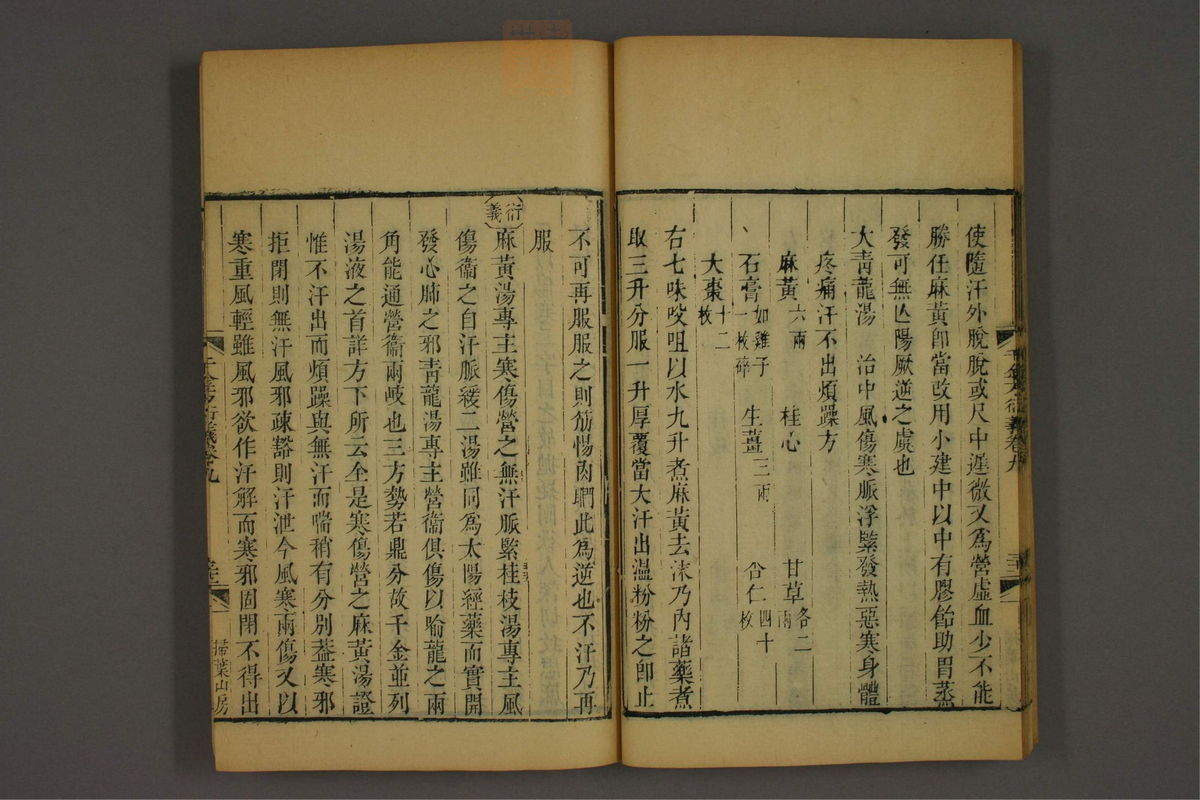 使隨汗外脫脫或尺中遲微又爲營虛血少不能
勝任麻黃卽當改用小建中以中有膠飴助胃蒸
發可無亾陽厥逆之虞也
大青龍湯　治中風傷寒脈浮緊發熱惡寒身體
疼痛汗不出煩躁方
麻黃六兩　桂心　甘草各二兩
石膏如雞子一枚碎　生薑三兩　杏仁四十枚
大棗十二枚
右七味㕮咀以水九升煮麻黃去沫乃內諸藥煮
取三升分服一升厚覆當大汗出溫粉粉之卽止
千金方衍義卷九
不可再服服之則筋惕肉瞤此爲逆也不汗乃再
服
衍義 麻黃湯專主寒傷營之無汗脈緊桂枝湯專主風
傷衞之自汗脈緩二湯雖同爲太陽經藥而實開
發心肺之邪青龍湯專主營衞俱傷以喻龍之兩
角能通營衞兩岐也三方勢若鼎分故千金並列
湯液之首詳方下所云全是寒傷營之麻黃湯證
惟不汗出而煩躁與無汗而喘稍有分別蓋寒邪
拒閉則無汗風邪疎豁則汗泄今風寒兩傷又以
寒重風輕雖風邪欲作汗解而寒邪固閉不得出
千金方衍義卷九
掃葉山房